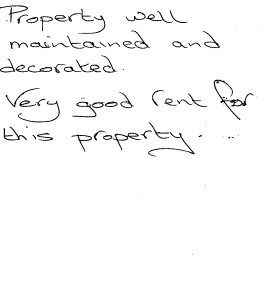 Property well
maintained and
decorated.
Very good rent for
this property. ...